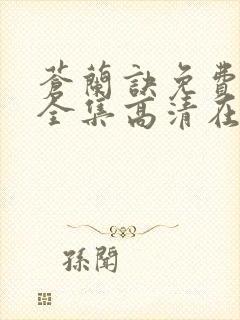 蒼蘭訣免費
全集高清在
孫聞